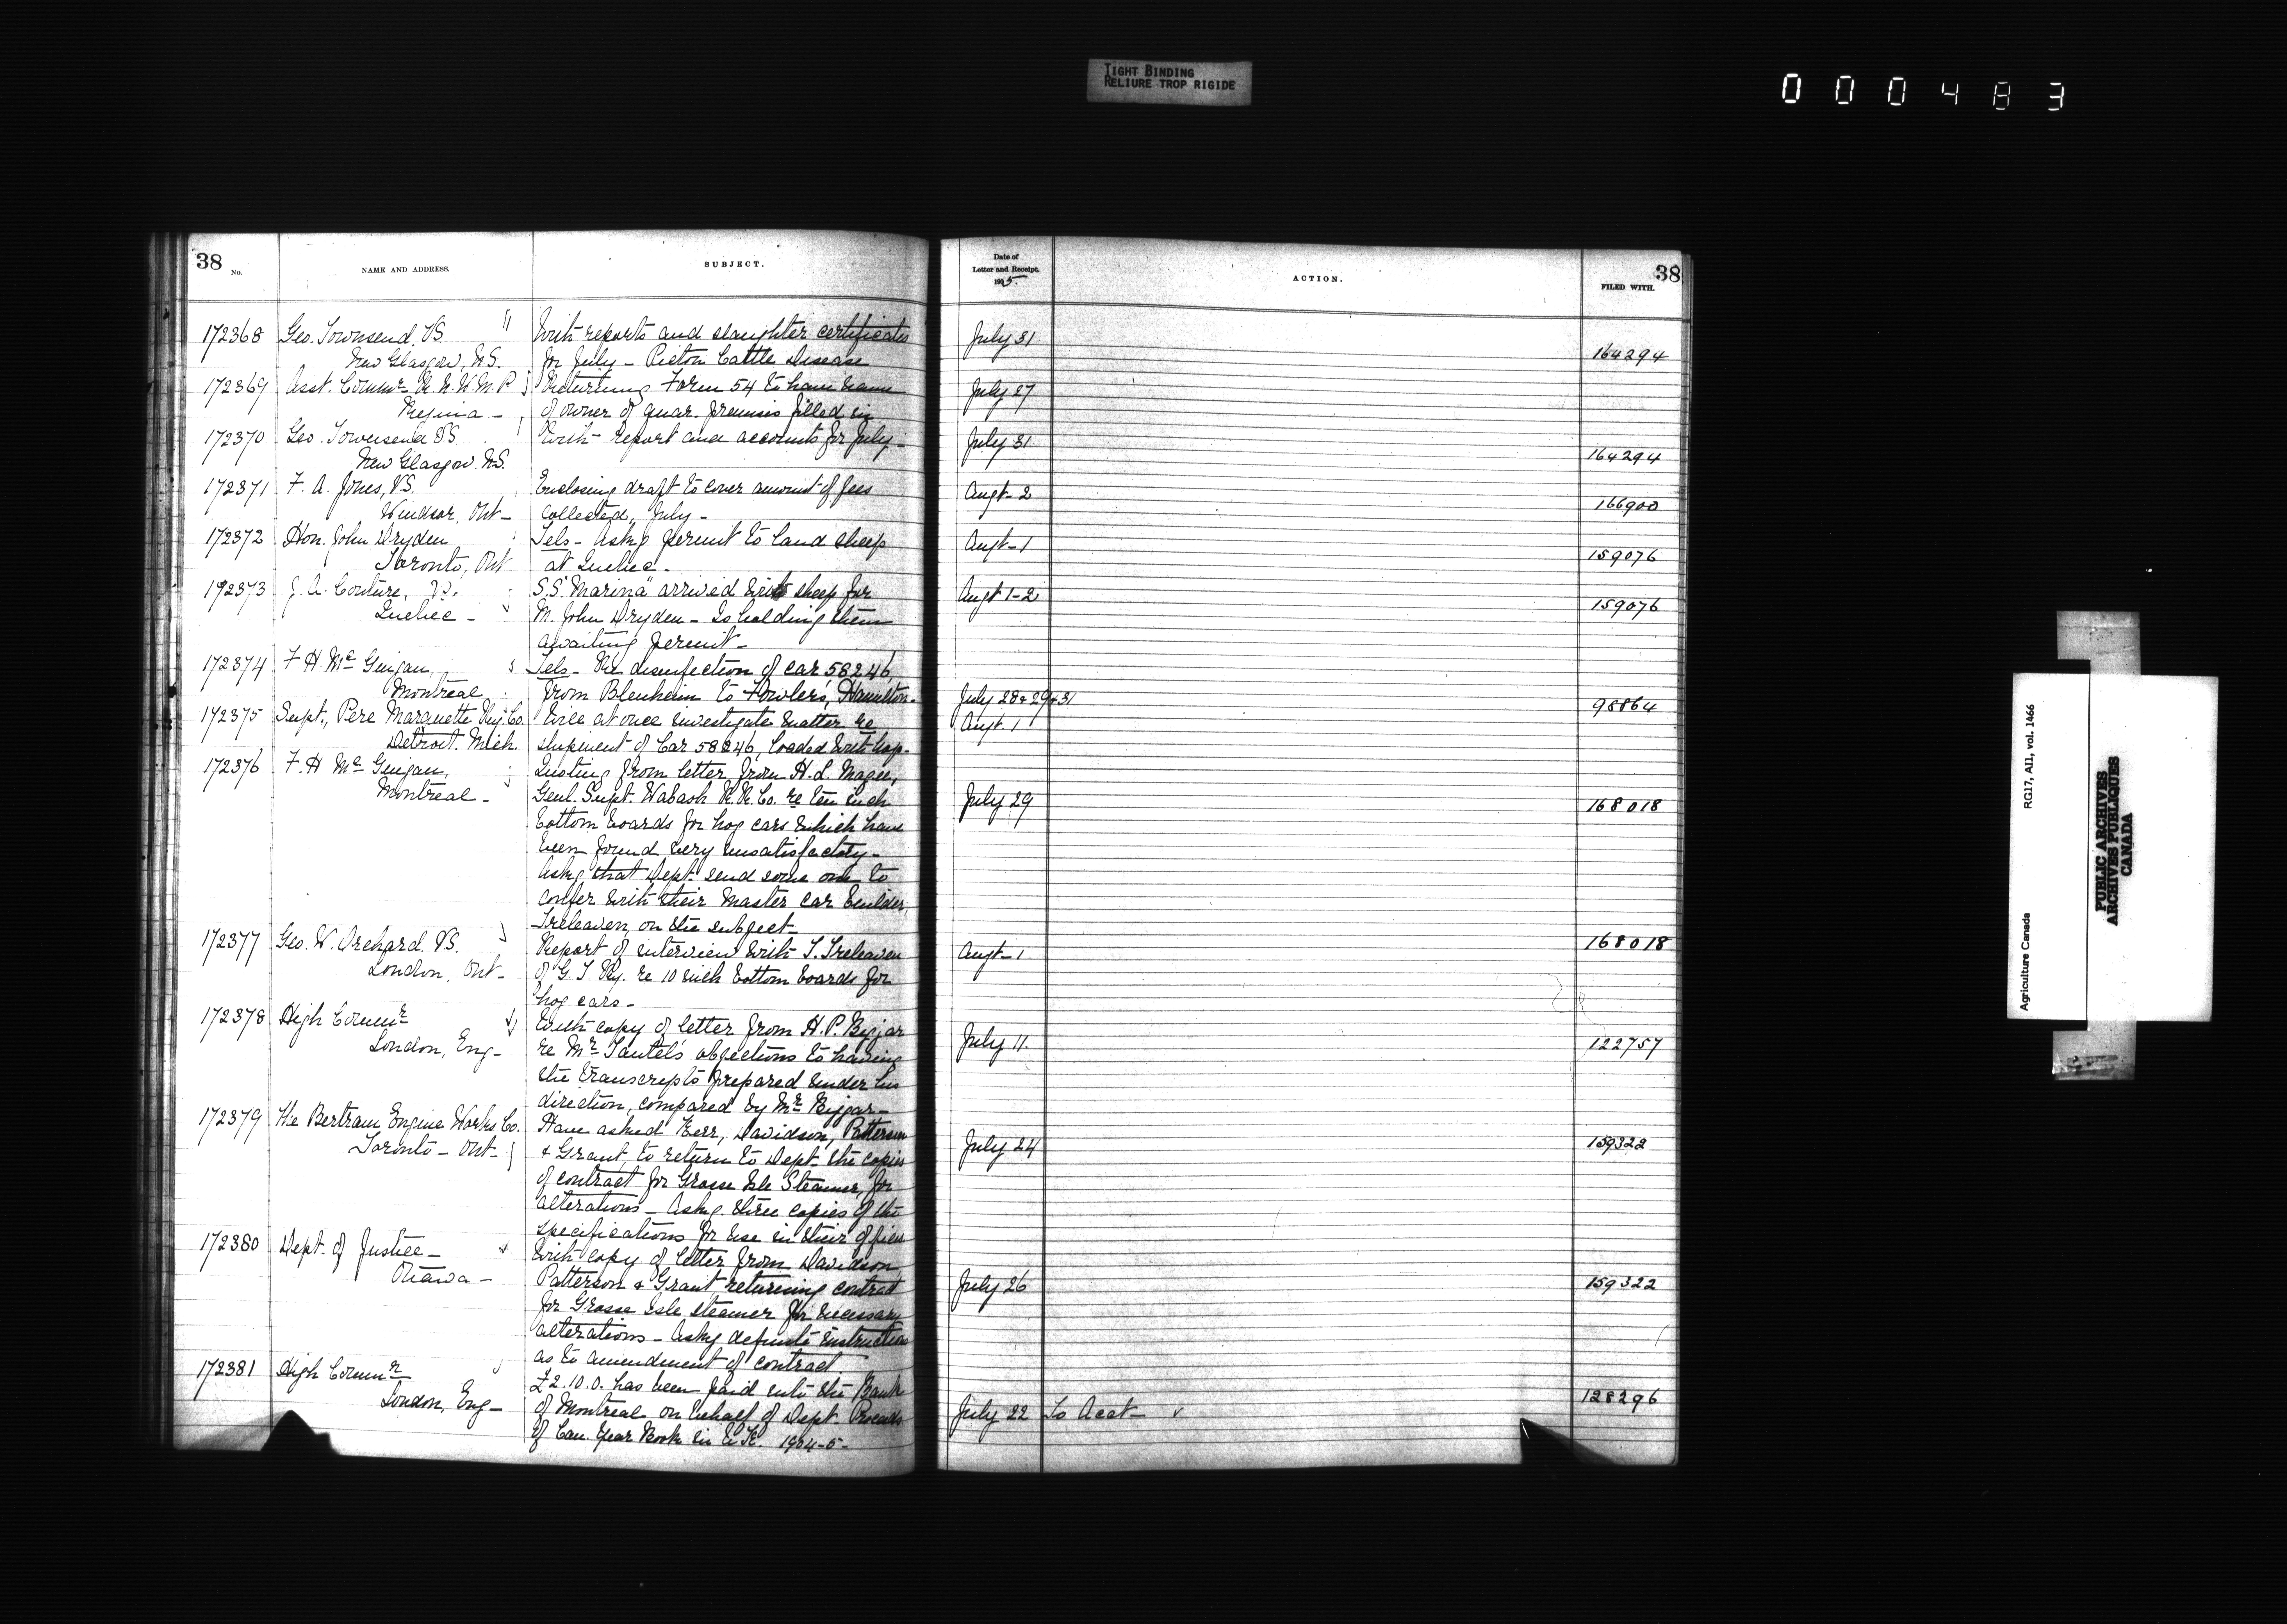 TIGHT BINDING
RELIURE TROP RIGIDE
000483
38
No.
NAME AND ADDRESS.
SUBJECT.
Date of
Letter and Receipt.
1905.
ACTION.
38
FILED WITH.
172368 Geo. Townsend, VS. With reports and slaughter certificates July 31
New Glasgow, N.S. for July - Pictou Cattle Disease 164294
172369 Asst. Commr R.N.W.M.P. Returning Form 54 to have name July 27
Regina - of owner of quar. premises filled in
172370 Geo. Townsend VS With report and accounts for July - July 31
New Glasgow. N.S. 164294
172371 F. A. Jones, VS. Enclosing draft to cover amount of fees Augt - 2
Windsor, Ont - collected, July - 166900
172372 Hon. John Dryden Tels - Askg permit to land sheep Augt - 1
Toronto, Ont at Quebec - 159076
172373 J. A. Couture, V.S. S.S. "Marina" arrived with sheep for Augt 1-2
Quebec - M. John Dryden - Is holding them 159076
awaiting permit -
172374 F H McGuigan, Tels - Re disinfection of car 58246
Montreal from Blenheim to Fowler's, Hamilton - July 28 & 29 & 31 98864
172375 Supt., Pere Marquette Ry. Co. Will at once investigate matter re Augt 1
Detroit. Mich. shipment of Car 58246, loaded with hogs -
172376 F. H McGuigan, Quoting from letter from H. L. Magee,
Montreal - Genl. Supt. Wabash R.R. Co. re ten inch July 29 168018
bottom boards for hog cars which have
been found very unsatisfactory -
Askg that Dept. send some one to
confer with their Master car builder,
Treleaven, on the subject -
172377 Geo. W. Orchard. VS. Report of interview with T. Treleaven Augt - 1 168018
London, Ont - of G. T. Ry. re 10 inch bottom boards for
hog cars -
172378 High Commr With copy of letter from H. P. Biggar
London, Eng - re Mr Tantet's objections to having July 11. 122757
the transcripts prepared under his
direction, compared by Mr Biggar -
172379 The Bertram Engine Works Co. Have asked Kerr, Davidson, Patterson
Toronto - Ont - & Grant, to return to Dept. the copies July 24 159322
of contract for Grosse Isle Steamer, for
alterations - Askg. three copies of the
specifications for use in their offices
172380 Dept. of Justice - With copy of letter from Davidson,
Ottawa - Patterson & Grant returning contract July 26 159322
for Grosse Isle steamer for necessary
alterations - Askg definite instructions
as to amendment of contract.
172381 High Commr £2.10.0. has been paid into the Bank
London, Eng - of Montreal on behalf of Dept. Proceeds July 22 To Acct - 128296
of Can. Year Book in U.K. 1904-5 -
Agriculture Canada RG17, A11, vol. 1466
PUBLIC ARCHIVES
ARCHIVES PUBLIQUES
CANADA